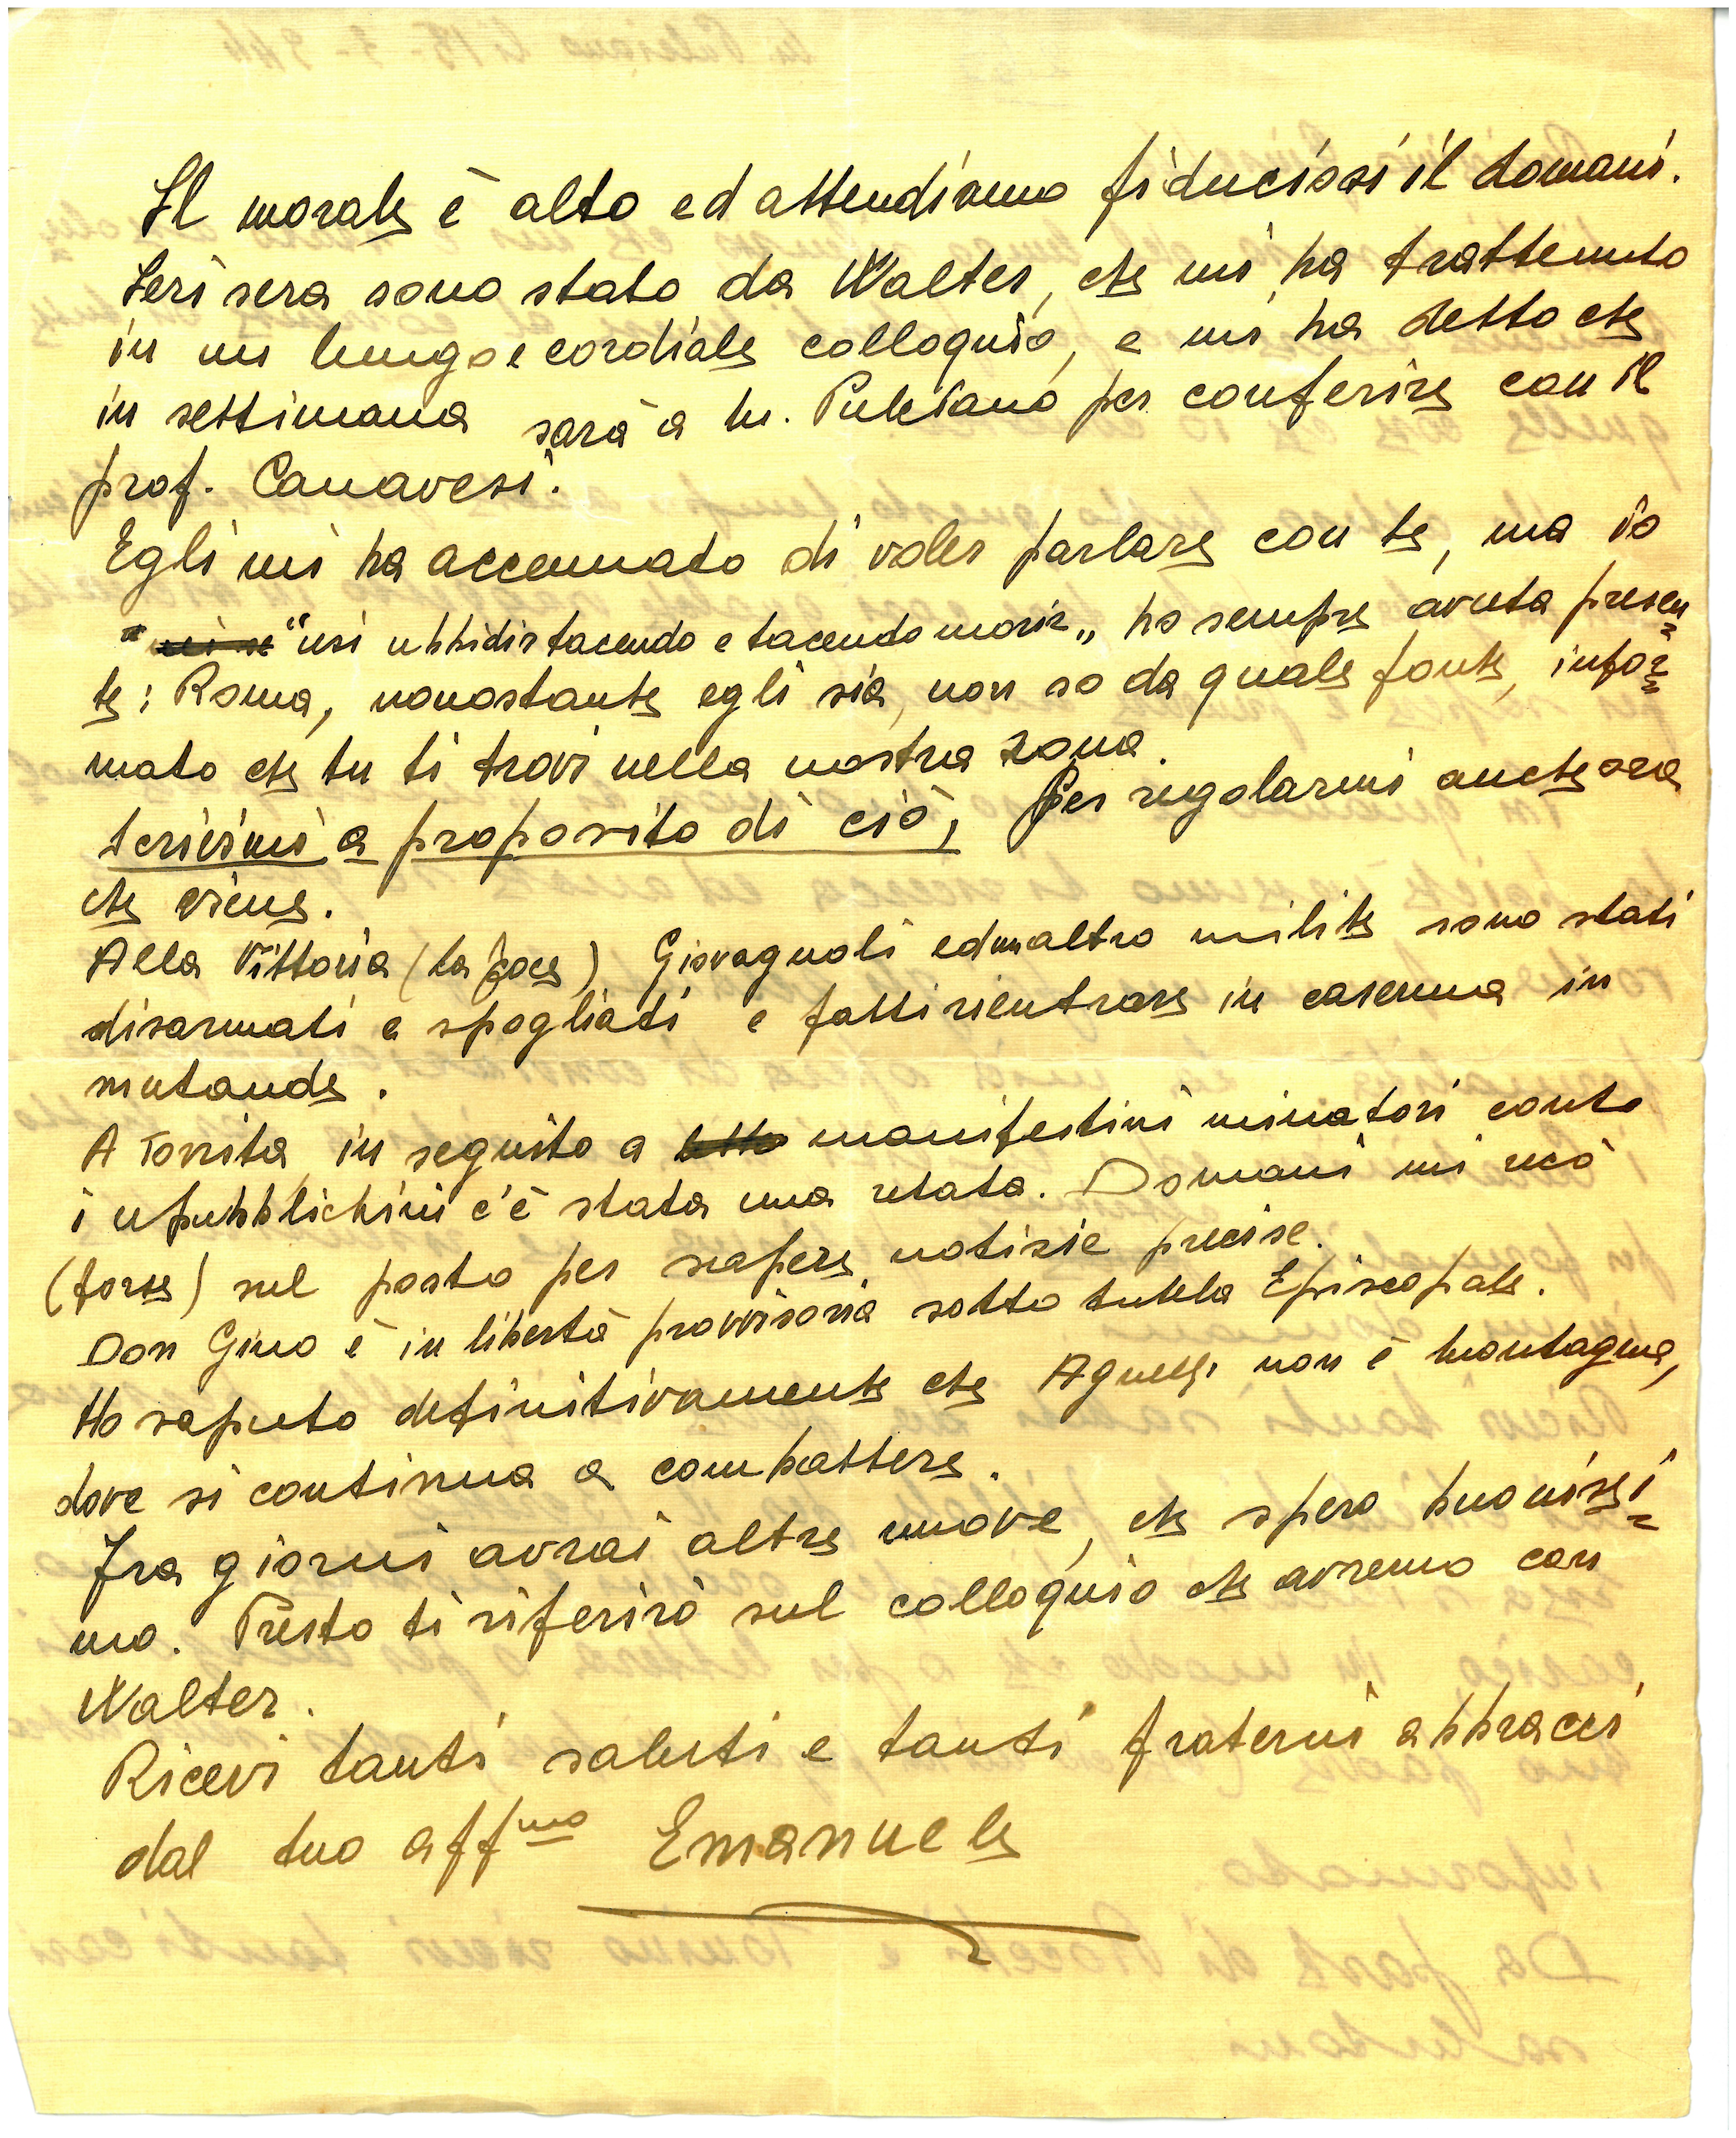 Il morale è alto ed attendiamo fiduciosi il domani.
Ieri sera sono stato da Walter, che mi ha trattenuto
in un lungo e cordiale colloquio, e mi ha detto che
in settimana sarà a M. Pulciano per conferire con il
prof. Canavesi.
Egli mi ha accennato di voler parlare con te, ma io
"usi ubbidir tacendo e tacendo morir„ ho sempre avuta presen=
te: Roma, nonostante egli sia, non so da quale fonte, infor=
mato che tu ti trovi nella nostra zona.
Scrivimi a proposito di ciò, per regolarmi anche ora
che viene.
Alla Vittoria (La Foce) Giovagnoli ed un altro milite sono stati
disarmati e spogliati e fatti rientrare in caserma in
mutande.
A Torrita, in seguito a manifestini minatori contro
i repubblichini c'è stata una retata. Domani mi recò
(forse) sul posto per sapere notizie precise.
Don Gino è in libertà provvisoria sotto tutela Episcopale.
Ho saputo definitivamente che non è montagna,
dove si continua a combattere.
Fra giorni avrai altre nuove, che spero buonissi=
mo. Presto ti riferirò sul colloquio che avremo con
Walter.
Ricevi tanti saluti e tanti fraterni abbracci
dal tuo aff.mo Emanuele